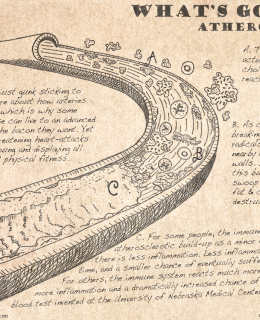 WHAT'S GO
ATHERO
A. T
actu
choi
reac
just gunk sticking to
re about how arteries
which is why some
se can live to an advanced
he bacon they want. Yet
reatening heart-attacks
ung and displaying all
physical fitness.
B. As c
breaking
radical
nearby
walls.
this bu
swoop
fat & c
destruc
A
B
C
C. For some people, the immune
atherosclerotic build-up as a minor
there is less inflammation. Less inflamma
time, and a smaller chance of eventually suffe
For others, the immune system reacts much more
more inflammation and a dramatically increased chance of
blood test invented at the University of Nebraska Medical Center